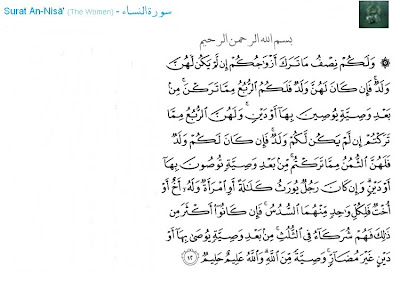 Surat An-Nisā' (The Women) - سورة النساء
بسم الله الرحمن الرحيم
وَلَكُمْ نِصْفُ مَا تَرَكَ أَزْوَاجُكُمْ إِن لَّمْ يَكُن لَّهُنَّ
وَلَدٌ فَإِن كَانَ لَهُنَّ وَلَدٌ فَلَكُمُ الرُّبُعُ مِمَّا تَرَكْنَ مِنْ
بَعْدِ وَصِيَّةٍ يُوصِينَ بِهَا أَوْ دَيْنٍ وَلَهُنَّ الرُّبُعُ مِمَّا
تَرَكْتُمْ إِن لَّمْ يَكُن لَّكُمْ وَلَدٌ فَإِن كَانَ لَكُمْ وَلَدٌ
فَلَهُنَّ الثُّمُنُ مِمَّا تَرَكْتُم مِّن بَعْدِ وَصِيَّةٍ تُوصُونَ بِهَا
أَوْ دَيْنٍ وَإِن كَانَ رَجُلٌ يُورَثُ كَلَالَةً أَوِ امْرَأَةٌ وَلَهُ أَخٌ أَوْ
أُخْتٌ فَلِكُلِّ وَاحِدٍ مِّنْهُمَا السُّدُسُ فَإِن كَانُوا أَكْثَرَ مِن
ذَٰلِكَ فَهُمْ شُرَكَاءُ فِي الثُّلُثِ مِن بَعْدِ وَصِيَّةٍ يُوصَىٰ بِهَا أَوْ
دَيْنٍ غَيْرَ مُضَارٍّ وَصِيَّةً مِّنَ اللَّهِ وَاللَّهُ عَلِيمٌ حَلِيمٌ ١٢